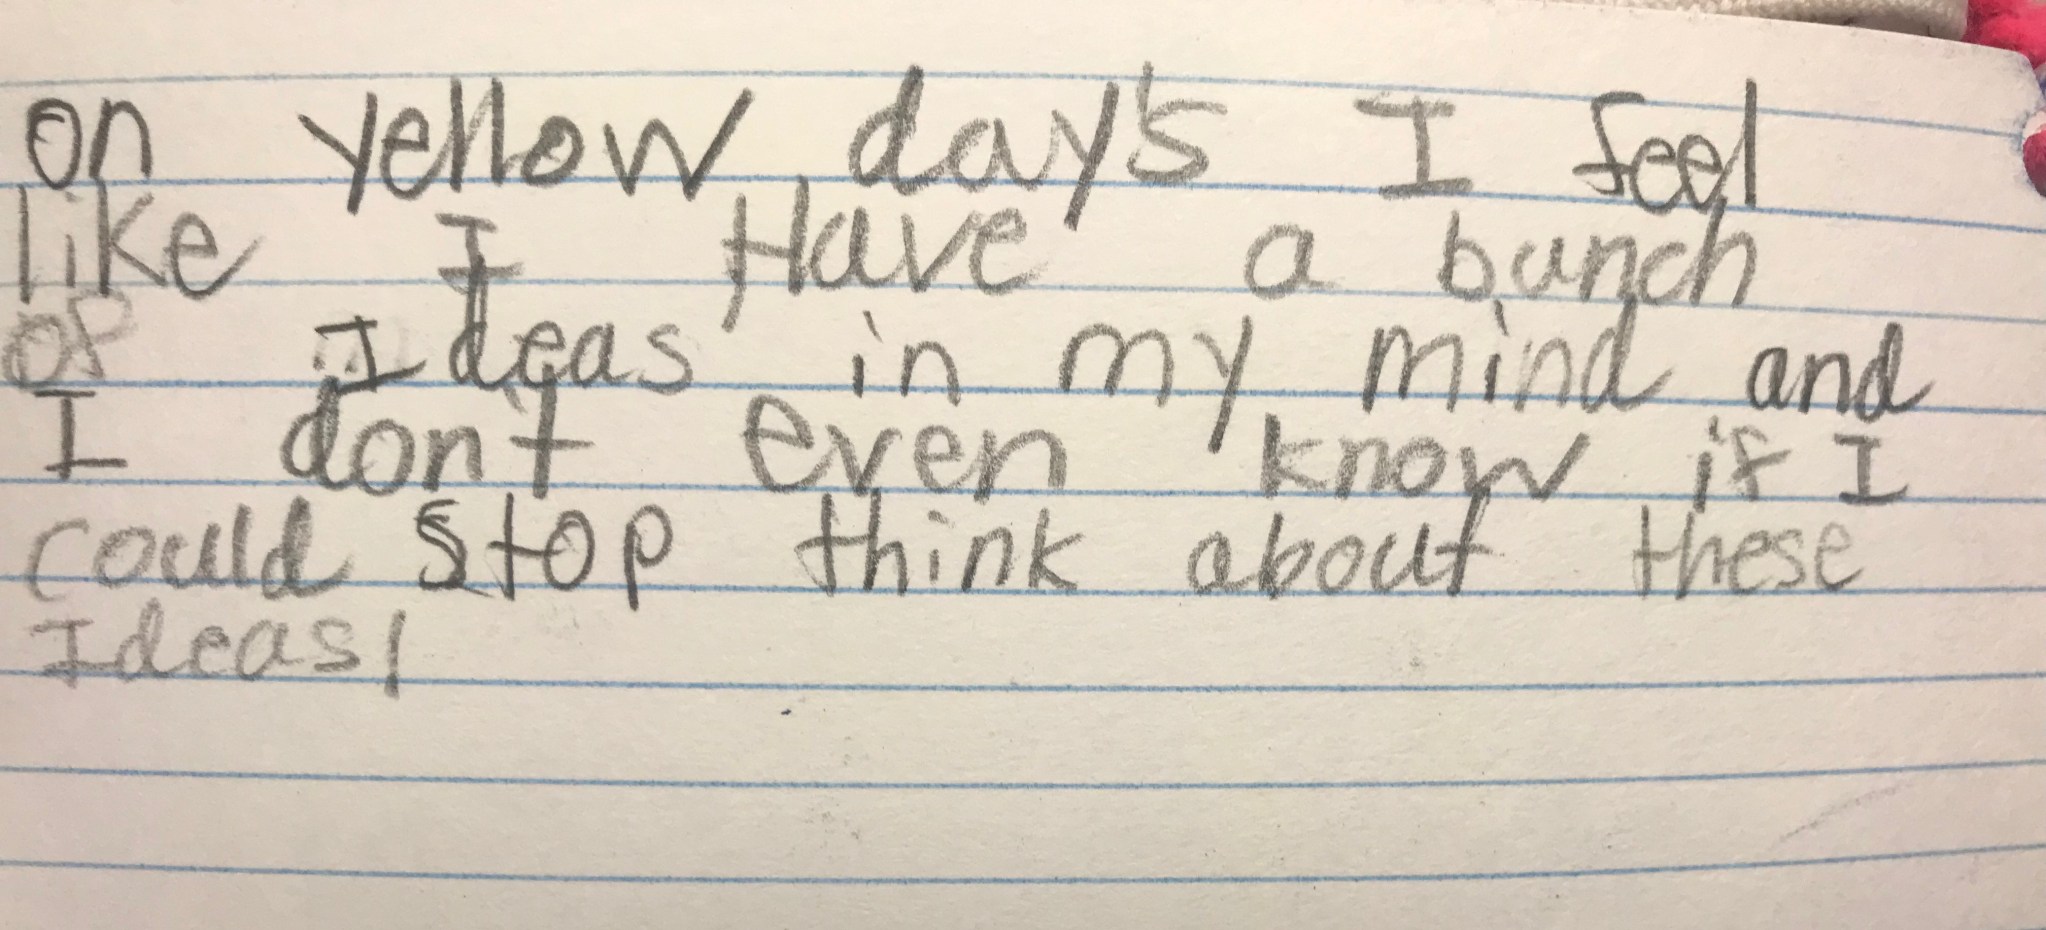 on yellow day's I feel
like I Have a bunch
of Ideas in my mind and
I don't even know if I
could stop think about these
Ideas!